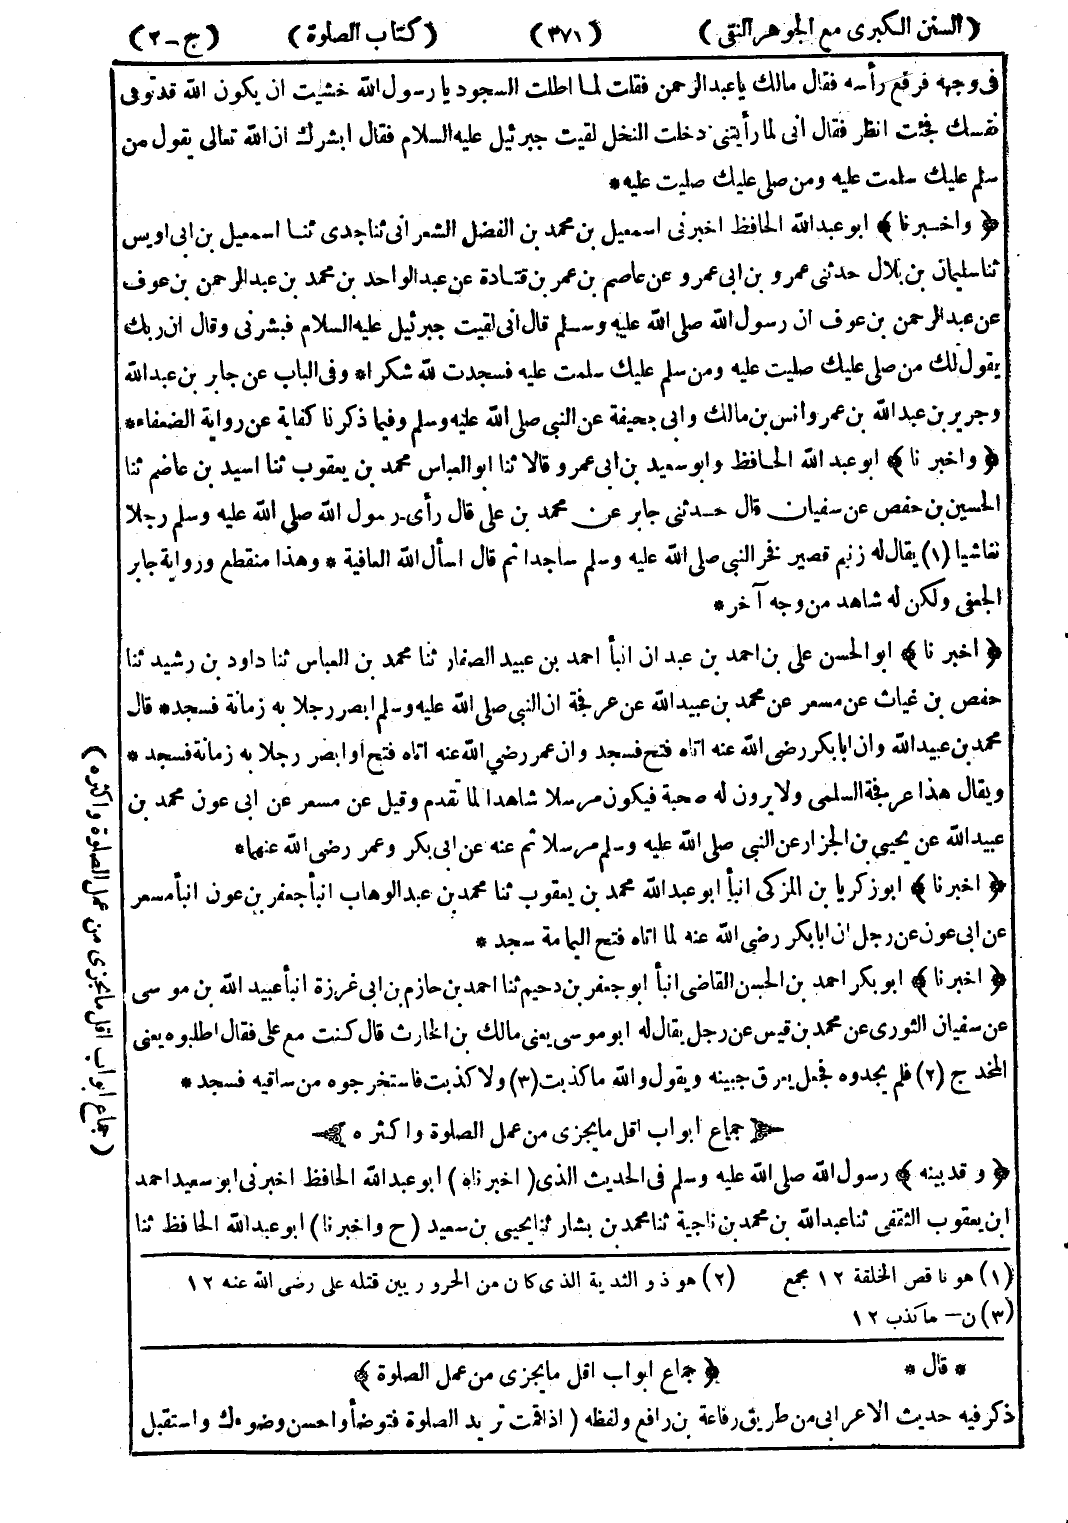 (السنن الكبرى مع الجوهر النقى) (٣٧١) (كتاب الصلوة) (ج-٢)
فى وجهه فرفع رأسه فقال مالك يا عبدالرحمن فقلت لما اطلت السجود يا رسول الله خشيت ان يكون الله قد توفى
نفسك فجئت انظر فقال انى لما رأيتنى دخلت النخل لقيت جبرئيل عليه السلام فقال ابشرك ان الله تعالى يقول من
سلم عليك سلمت عليه ومن صلى عليك صليت عليه*
﴿واخبرنا﴾ ابو عبدالله الحافظ اخبرنى اسمعيل بن محمد بن الفضل الشعرانى ثنا جدى ثنا اسمعيل بن ابى اويس
ثنا سليمان بن بلال حدثنى عمرو بن ابى عمرو عن عاصم بن عمر بن قتادة عن عبدالواحد بن محمد بن عبدالرحمن بن عوف
عن عبدالرحمن بن عوف ان رسول الله صلى الله عليه وسلم قال انى لقيت جبرئيل عليه السلام فبشرنى وقال ان ربك
يقول لك من صلى عليك صليت عليه ومن سلم عليك سلمت عليه فسجدت لله شكرا* وفى الباب عن جابر بن عبدالله
وجرير بن عبدالله بن عمر وانس بن مالك وابى جحيفة عن النبى صلى الله عليه وسلم وفيما ذكرنا كفاية عن رواية الضعفاء*
﴿واخبرنا﴾ ابو عبدالله الحافظ وابو سعيد بن ابى عمرو قالا ثنا ابوالعباس محمد بن يعقوب ثنا اسيد بن عاصم ثنا
الحسين بن حفص عن سفيان قال حدثنى جابر عن محمد بن على قال رأى رسول الله صلى الله عليه وسلم رجلا
نغاشيا (١) يقال له زنيم قصير فخر النبى صلى الله عليه وسلم ساجدا ثم قال اسأل الله العافية * وهذا منقطع ورواية جابر
الجعفى ولكن له شاهد من وجه آخر*
﴿اخبرنا﴾ ابو الحسن على بن احمد بن عبدان انبأ احمد بن عبيد الصفار ثنا محمد بن العباس ثنا داود بن رشيد ثنا
حفص بن غياث عن مسعر عن محمد بن عبيدالله عن عرفجة ان النبى صلى الله عليه وسلم ابصر رجلا به زمانة فسجد* قال
محمد بن عبيدالله وان ابابكر رضى الله عنه اتاه فتح فسجد وان عمر رضي الله عنه اتاه فتح أو ابصر رجلا به زمانة فسجد *
ويقال هذا عرفجة السلمى ولا يرون له صحبة فيكون مرسلا شاهدا لما تقدم وقيل عن مسعر عن ابى عون محمد بن
عبيدالله عن يحيى بن الجزار عن النبى صلى الله عليه وسلم مرسلا ثم عنه عن ابى بكر وعمر رضى الله عنهما*
﴿اخبرنا﴾ ابو زكريا بن المزكى انبأ ابو عبدالله محمد بن يعقوب ثنا محمد بن عبدالوهاب انبأ جعفر بن عون انبأ مسعر
عن ابى عون عن رجل ان ابابكر رضى الله عنه لما اتاه فتح اليمامة سجد *
﴿اخبرنا﴾ ابو بكر احمد بن الحسن القاضى انبأ ابو جعفر بن دحيم ثنا احمد بن حازم بن ابى غرزة انبأ عبيد الله بن موسى
عن سفيان الثورى عن محمد بن قيس عن رجل يقال له ابو موسى يعنى مالك بن الحارث قال كنت مع على فقال اطلبوه يعنى
المخدج (٢) فلم يجدوه فجعل يعرق جبينه ويقول والله ما كذبت (٣) ولا كذبت فاستخرجوه من ساقيه فسجد *
﴿جماع ابواب اقل ما يجزى من عمل الصلوة واكثره﴾
﴿وقد بينه﴾ رسول الله صلى الله عليه وسلم فى الحديث الذى (اخبرناه) ابو عبدالله الحافظ اخبرنى ابو سعيد احمد
ابن يعقوب الثقفى ثنا عبدالله بن محمد بن ناجية ثنا محمد بن بشار ثنا يحيى بن سعيد (ح واخبرنا) ابو عبدالله الحافظ ثنا
(١) هو ناقص الخلقة ١٢ مجمع (٢) هو ذو الثدية الذى كان من الحروريين قتله على رضى الله عنه ١٢
(٣) ن- ما كذب ١٢
* قال * ﴿جماع ابواب اقل ما يجزى من عمل الصلوة﴾
ذكر فيه حديث الاعرابى من طريق رفاعة بن رافع ولفظه (اذا قمت تريد الصلوة فتوضأ واحسن وضوءك واستقبل
(جماع ابواب اقل ما يجزى من عمل الصلوة واكثره)